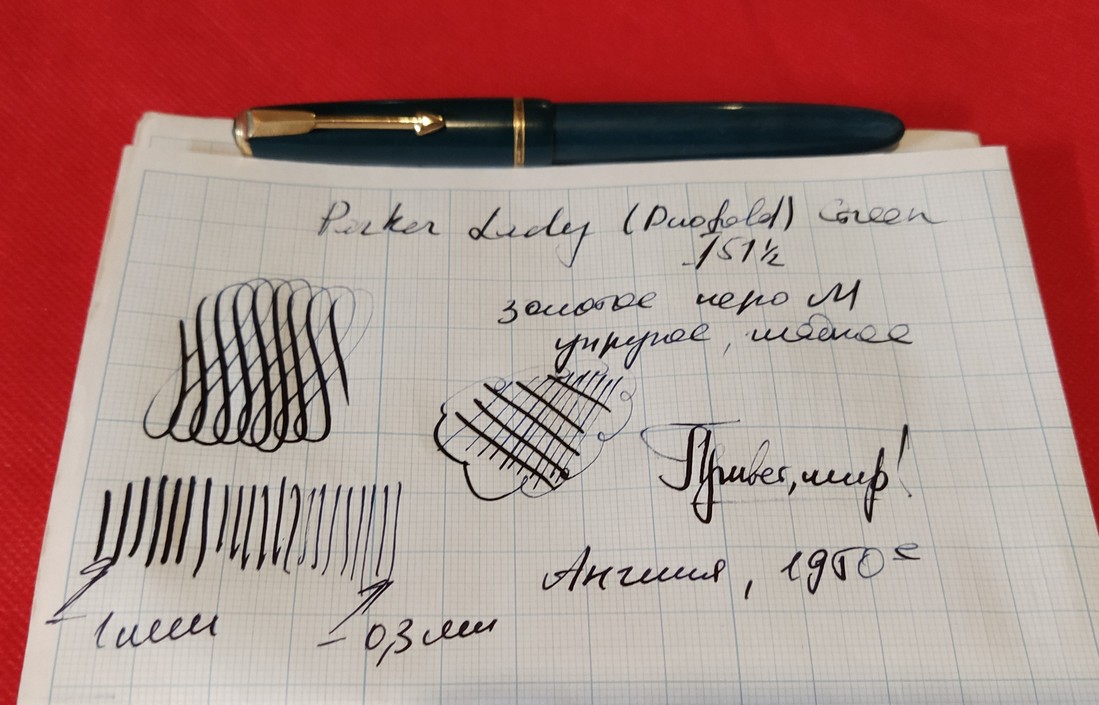 Parker Lady (Duofold) Green
151½
золотое перо М
упругое, мягкое
Привет, мир!
Англия, 1950е
~1мм
~0,3мм